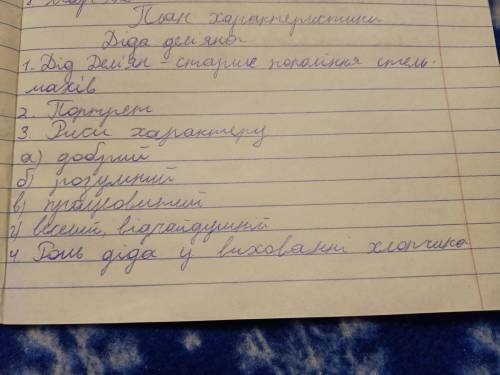 План характеристики
Діда дем'яна
1. Дід Дем'ян - старше покоління стель-
махів
2. Портрет
3. Риси характеру
а) добрий
б) розумний
в) працьовитий
г) веселий,
4 Роль діда у вихованні хлопчика